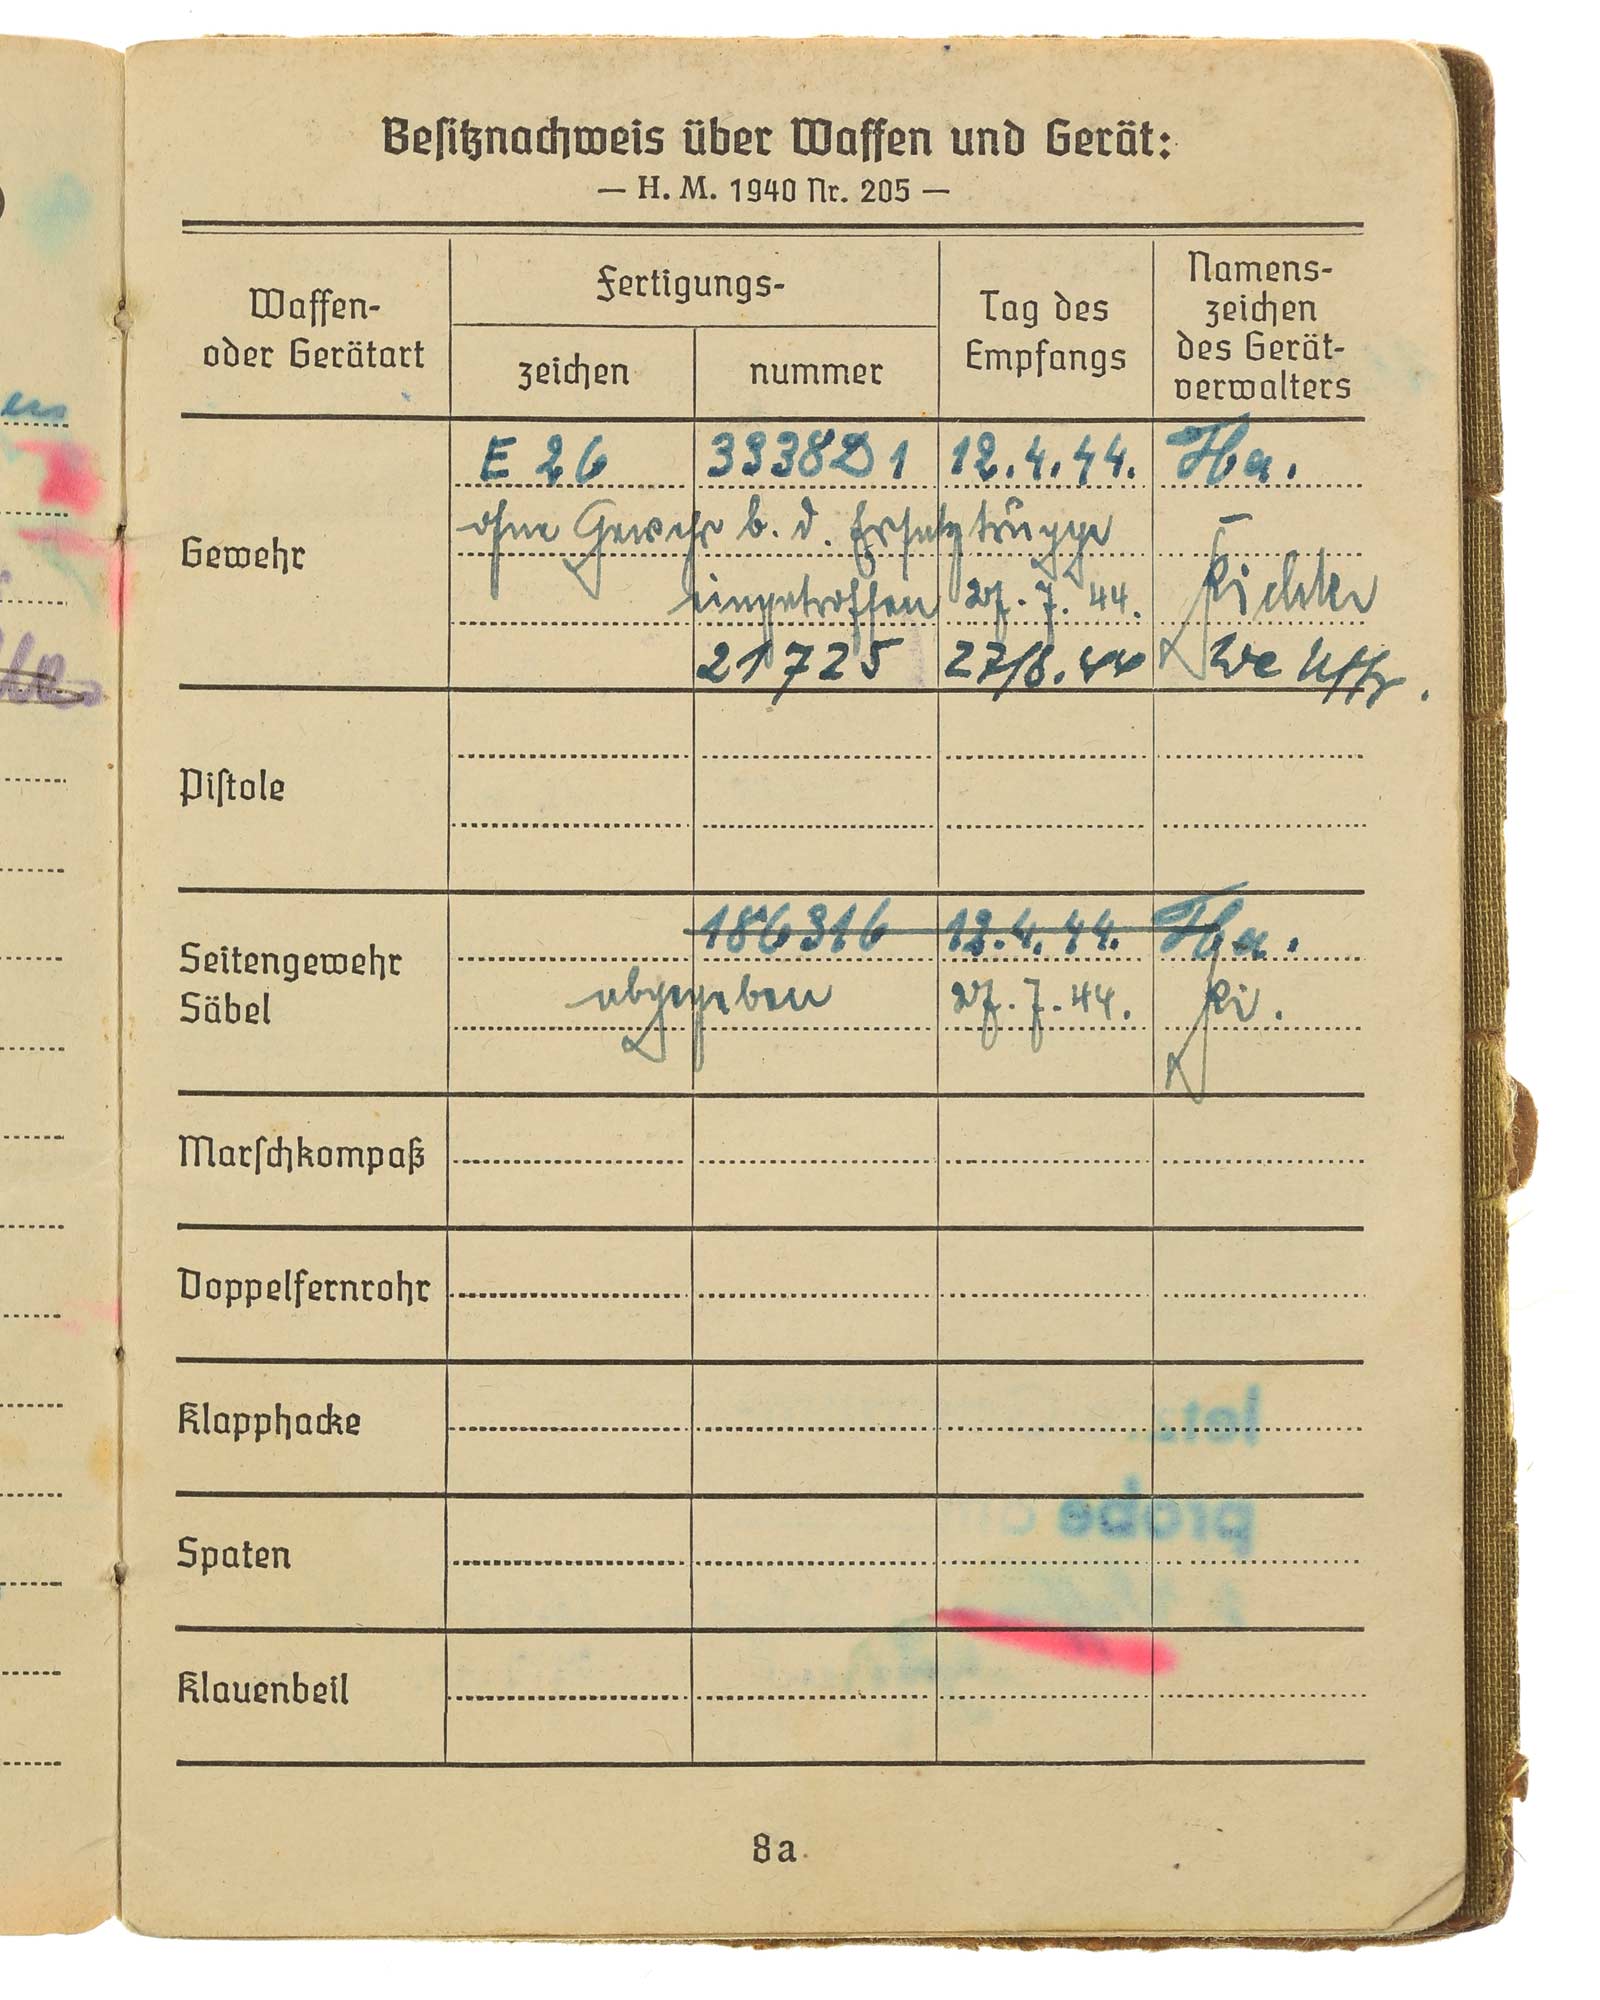 Besitznachweis über Waffen und Gerät:
— H. M. 1940 Nr. 205 —
Waffen-
oder Gerätart
Fertigungs-
zeichen
nummer
Tag des
Empfangs
Namens-
zeichen
des Gerät-
verwalters
Gewehr
E 26 3338D1 12.4.44. Ha.
ohne Gewehr b. d. Ersatztruppe
eingetroffen 27.7.44.
21725 27/8.44 Uffz.
Pistole
Seitengewehr
Säbel
186316 12.4.44. Ha.
abgegeben 27.7.44. Ki.
Marschkompaß
Doppelfernrohr
Klapphacke
Spaten
Klauenbeil
8a